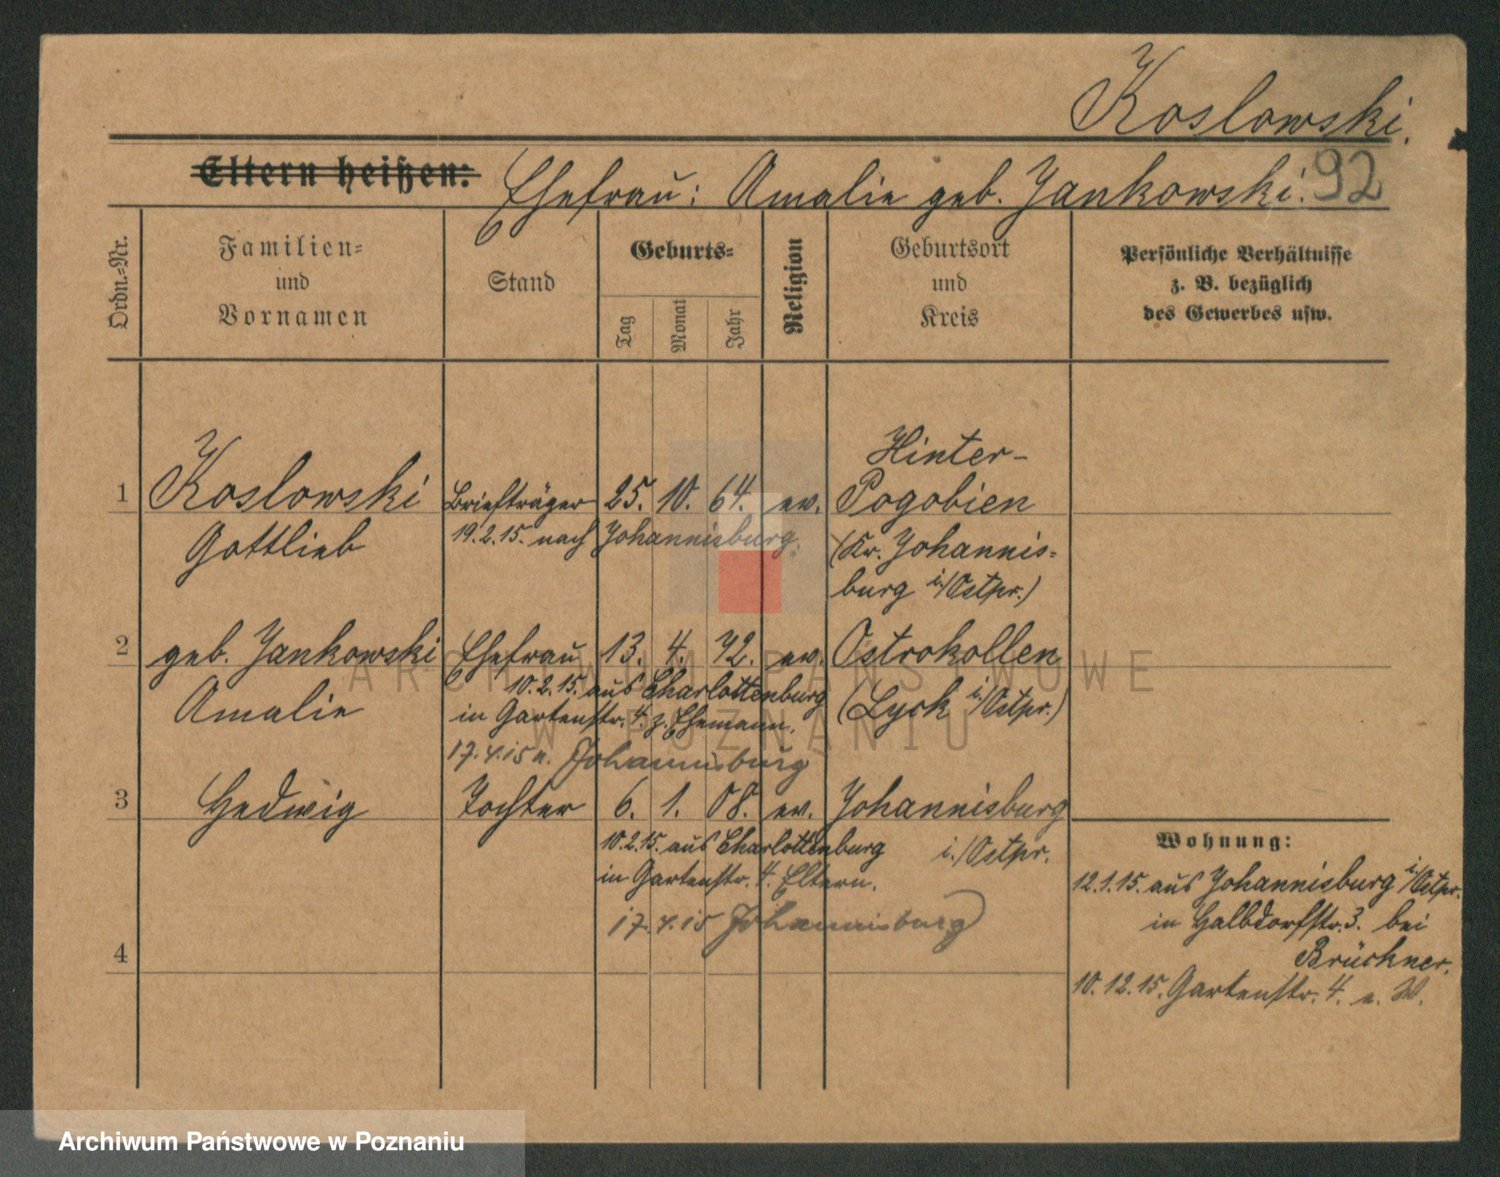 Koslowski.
Eltern heißen: Ehefrau: Amalie geb. Jankowski. 92
Ordn.=Nr.
Familien=
und
Vornamen
Stand
Geburts=
Tag
Monat
Jahr
Religion
Geburtsort
und
Kreis
Persönliche Verhältnisse
z. B. bezüglich
des Gewerbes usw.
Hinter-
1 Koslowski Briefträger 25. 10. 64. ev. Pogobien
Gottlieb 19.2.15. nach Johannisburg. (Kr. Johannis=
burg i/Ostpr.)
2 geb. Jankowski Ehefrau 13. 4. 72. ev. Ostrokollen
10.2.15. aus Charlottenburg
Amalie in Gartenstr. 4. z. Ehemann. (Lyck i/Ostpr.)
17.4.15 n. Johannisburg
3 Hedwig Tochter 6. 1. 08. ev. Johannisburg
i./Ostpr.
10.2.15. aus Charlottenburg
in Gartenstr. 4. Eltern.
17.4.15 Johannisburg
4
Wohnung:
12.1.15. aus Johannisburg i/Ostpr.
in Halbdorfstr. 3. bei
Brückner.
10.12.15. Gartenstr. 4. a. W.
ARCHIWUM PAŃSTWOWE
W POZNANIU
Archiwum Państwowe w Poznaniu